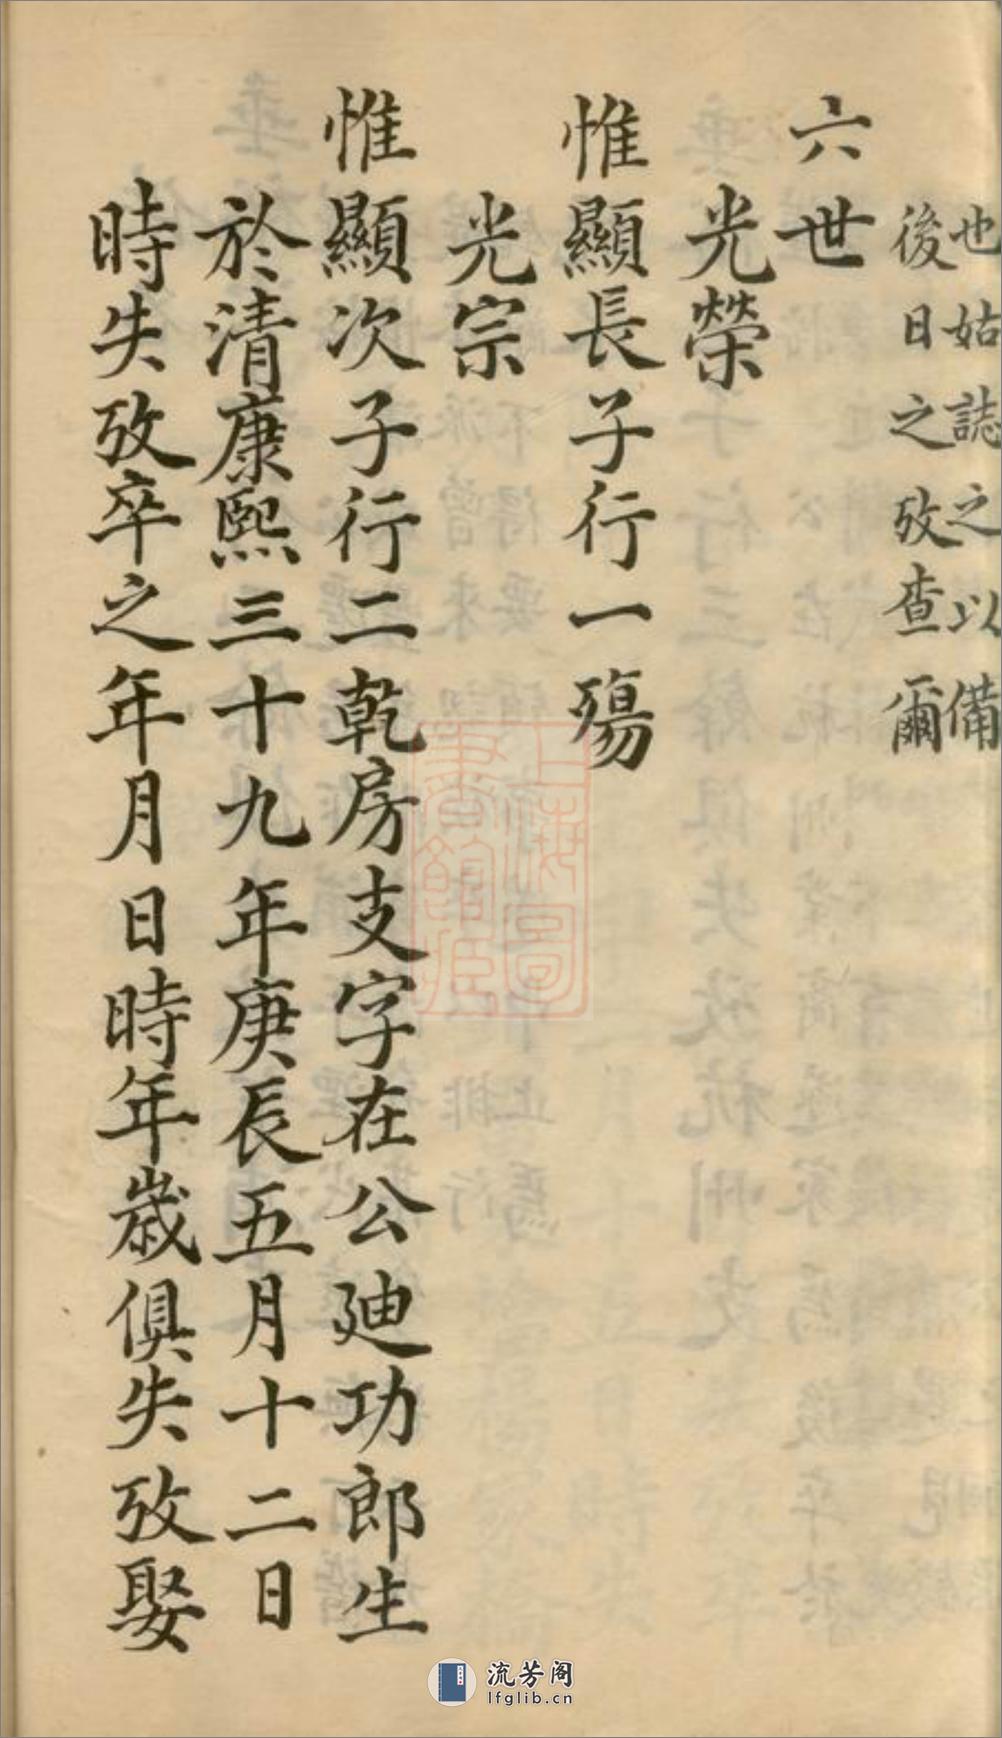 也姑誌之以備
後日之攷查爾
六世
光榮
惟顯長子行一殤
光宗
惟顯次子行二乾房支字在公廸功郎生
於清康熙三十九年庚辰五月十二日
時失攷卒之年月日時年歲俱失攷娶
上海圖書館藏
流芳阁
lfglib.cn